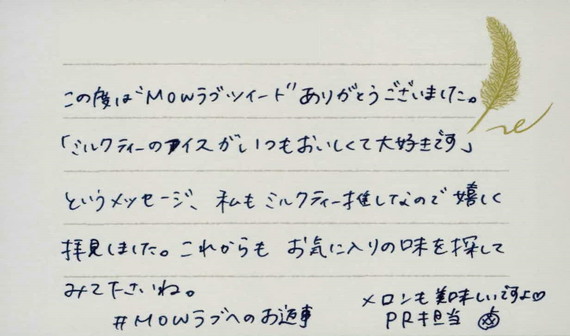 この度は“MOWラブツイート”ありがとうございました。
「ミルクティーのアイスがいつもおいしくて大好きです」
というメッセージ、私もミルクティー推しなので嬉しく
拝見しました。これからも お気に入りの味を探して
みて下さいね。
メロンも美味しいですよ♡
#MOWラブへのお返事
PR担当